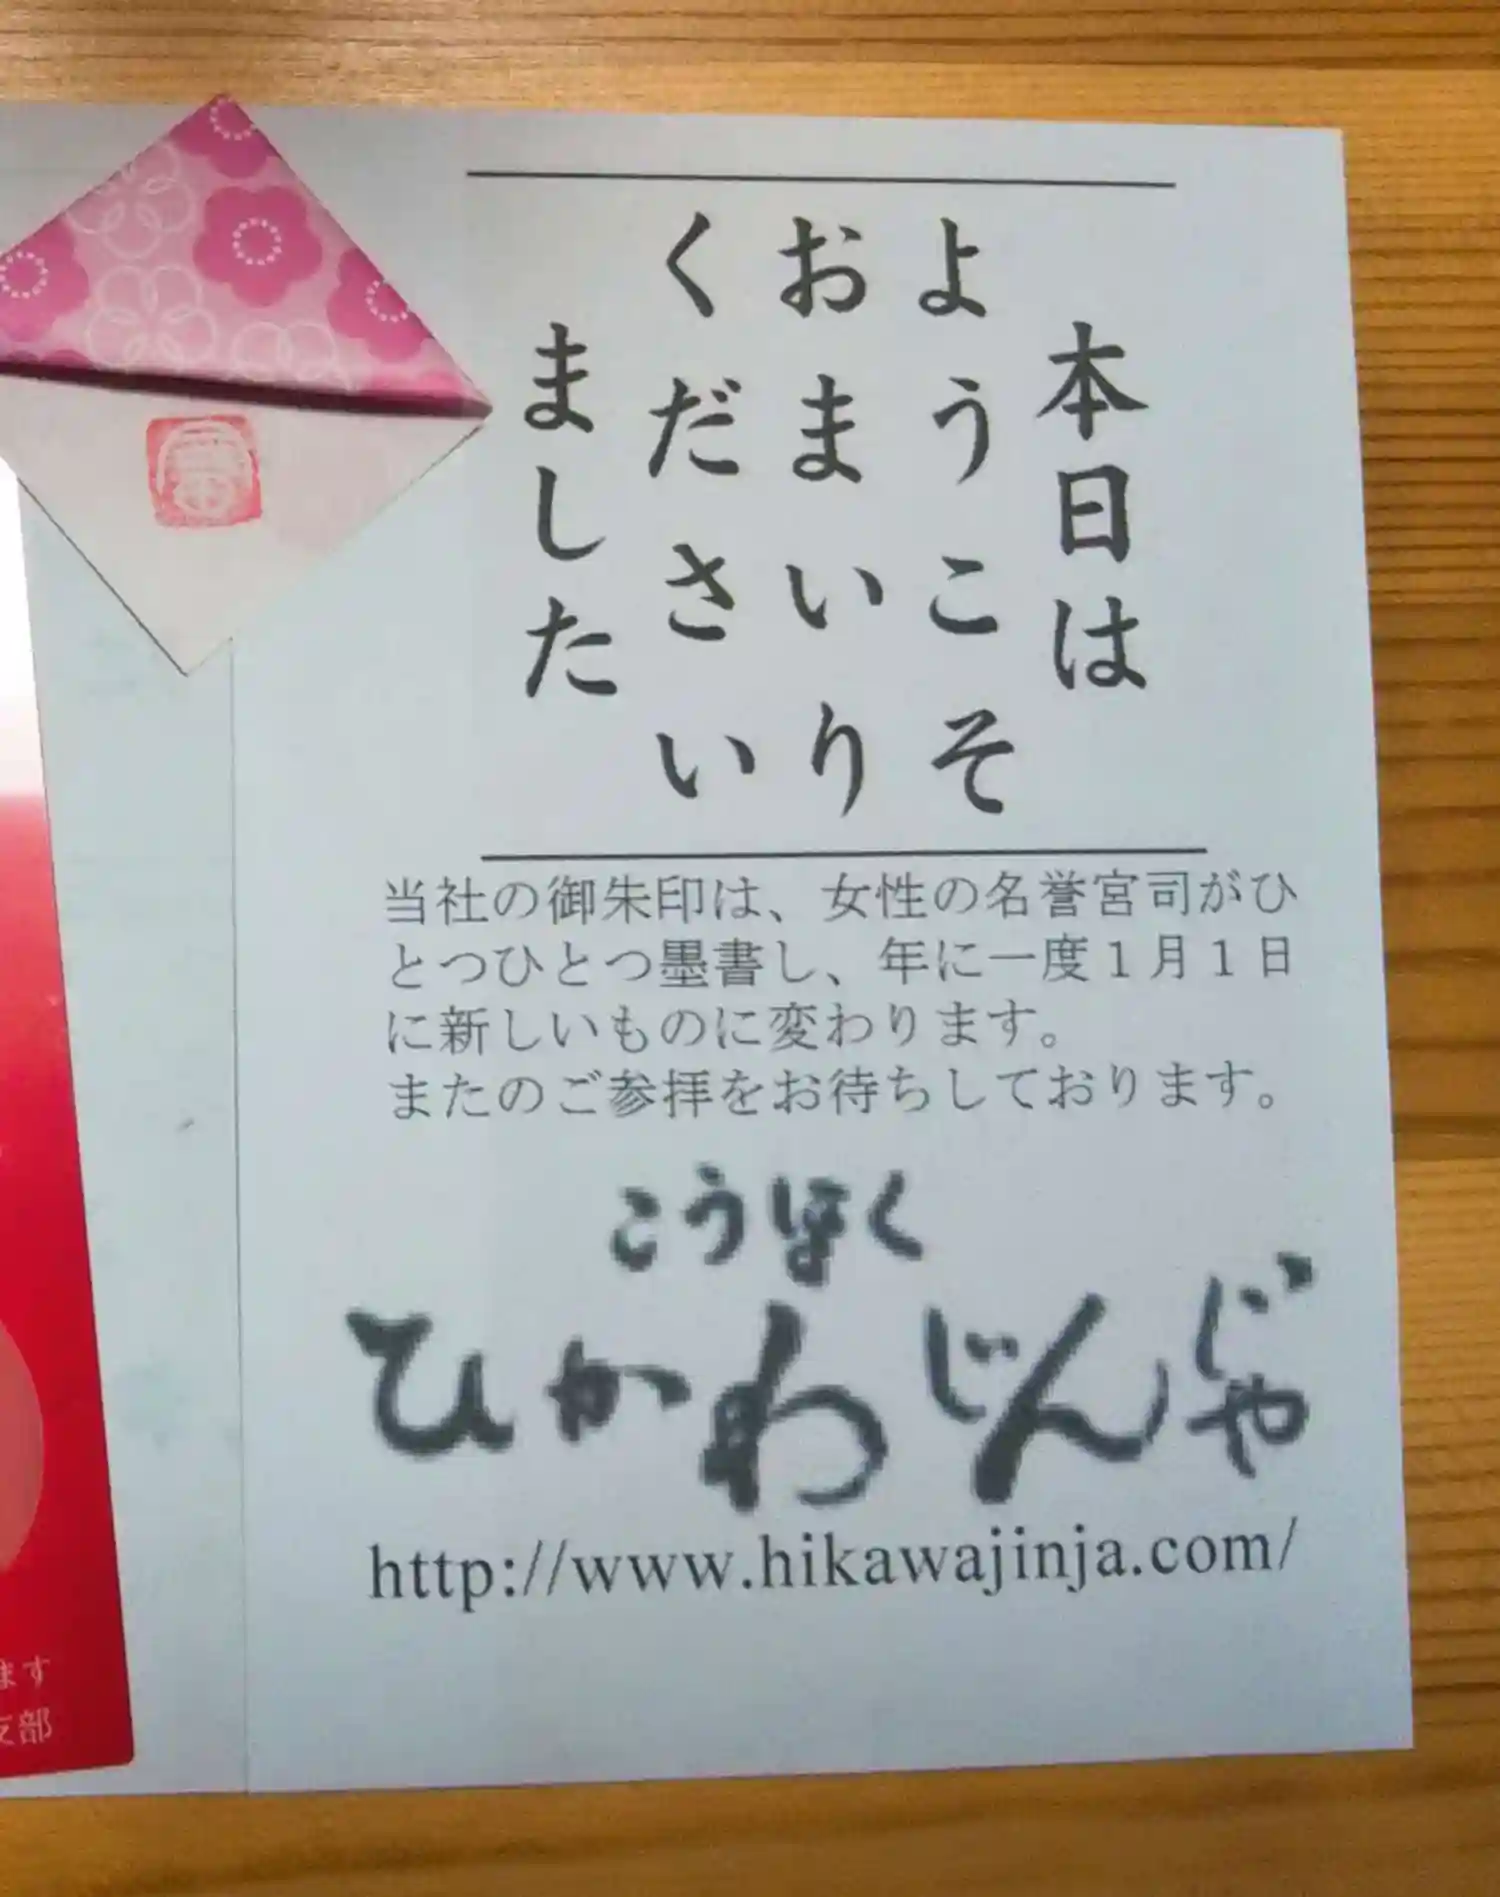 本日は
ようこそ
おまいり
ください
ました
当社の御朱印は、女性の名誉宮司がひ
とつひとつ墨書し、年に一度１月１日
に新しいものに変わります。
またのご参拝をお待ちしております。
こうほく
ひかわじんじゃ
http://www.hikawajinja.com/
ます
支部